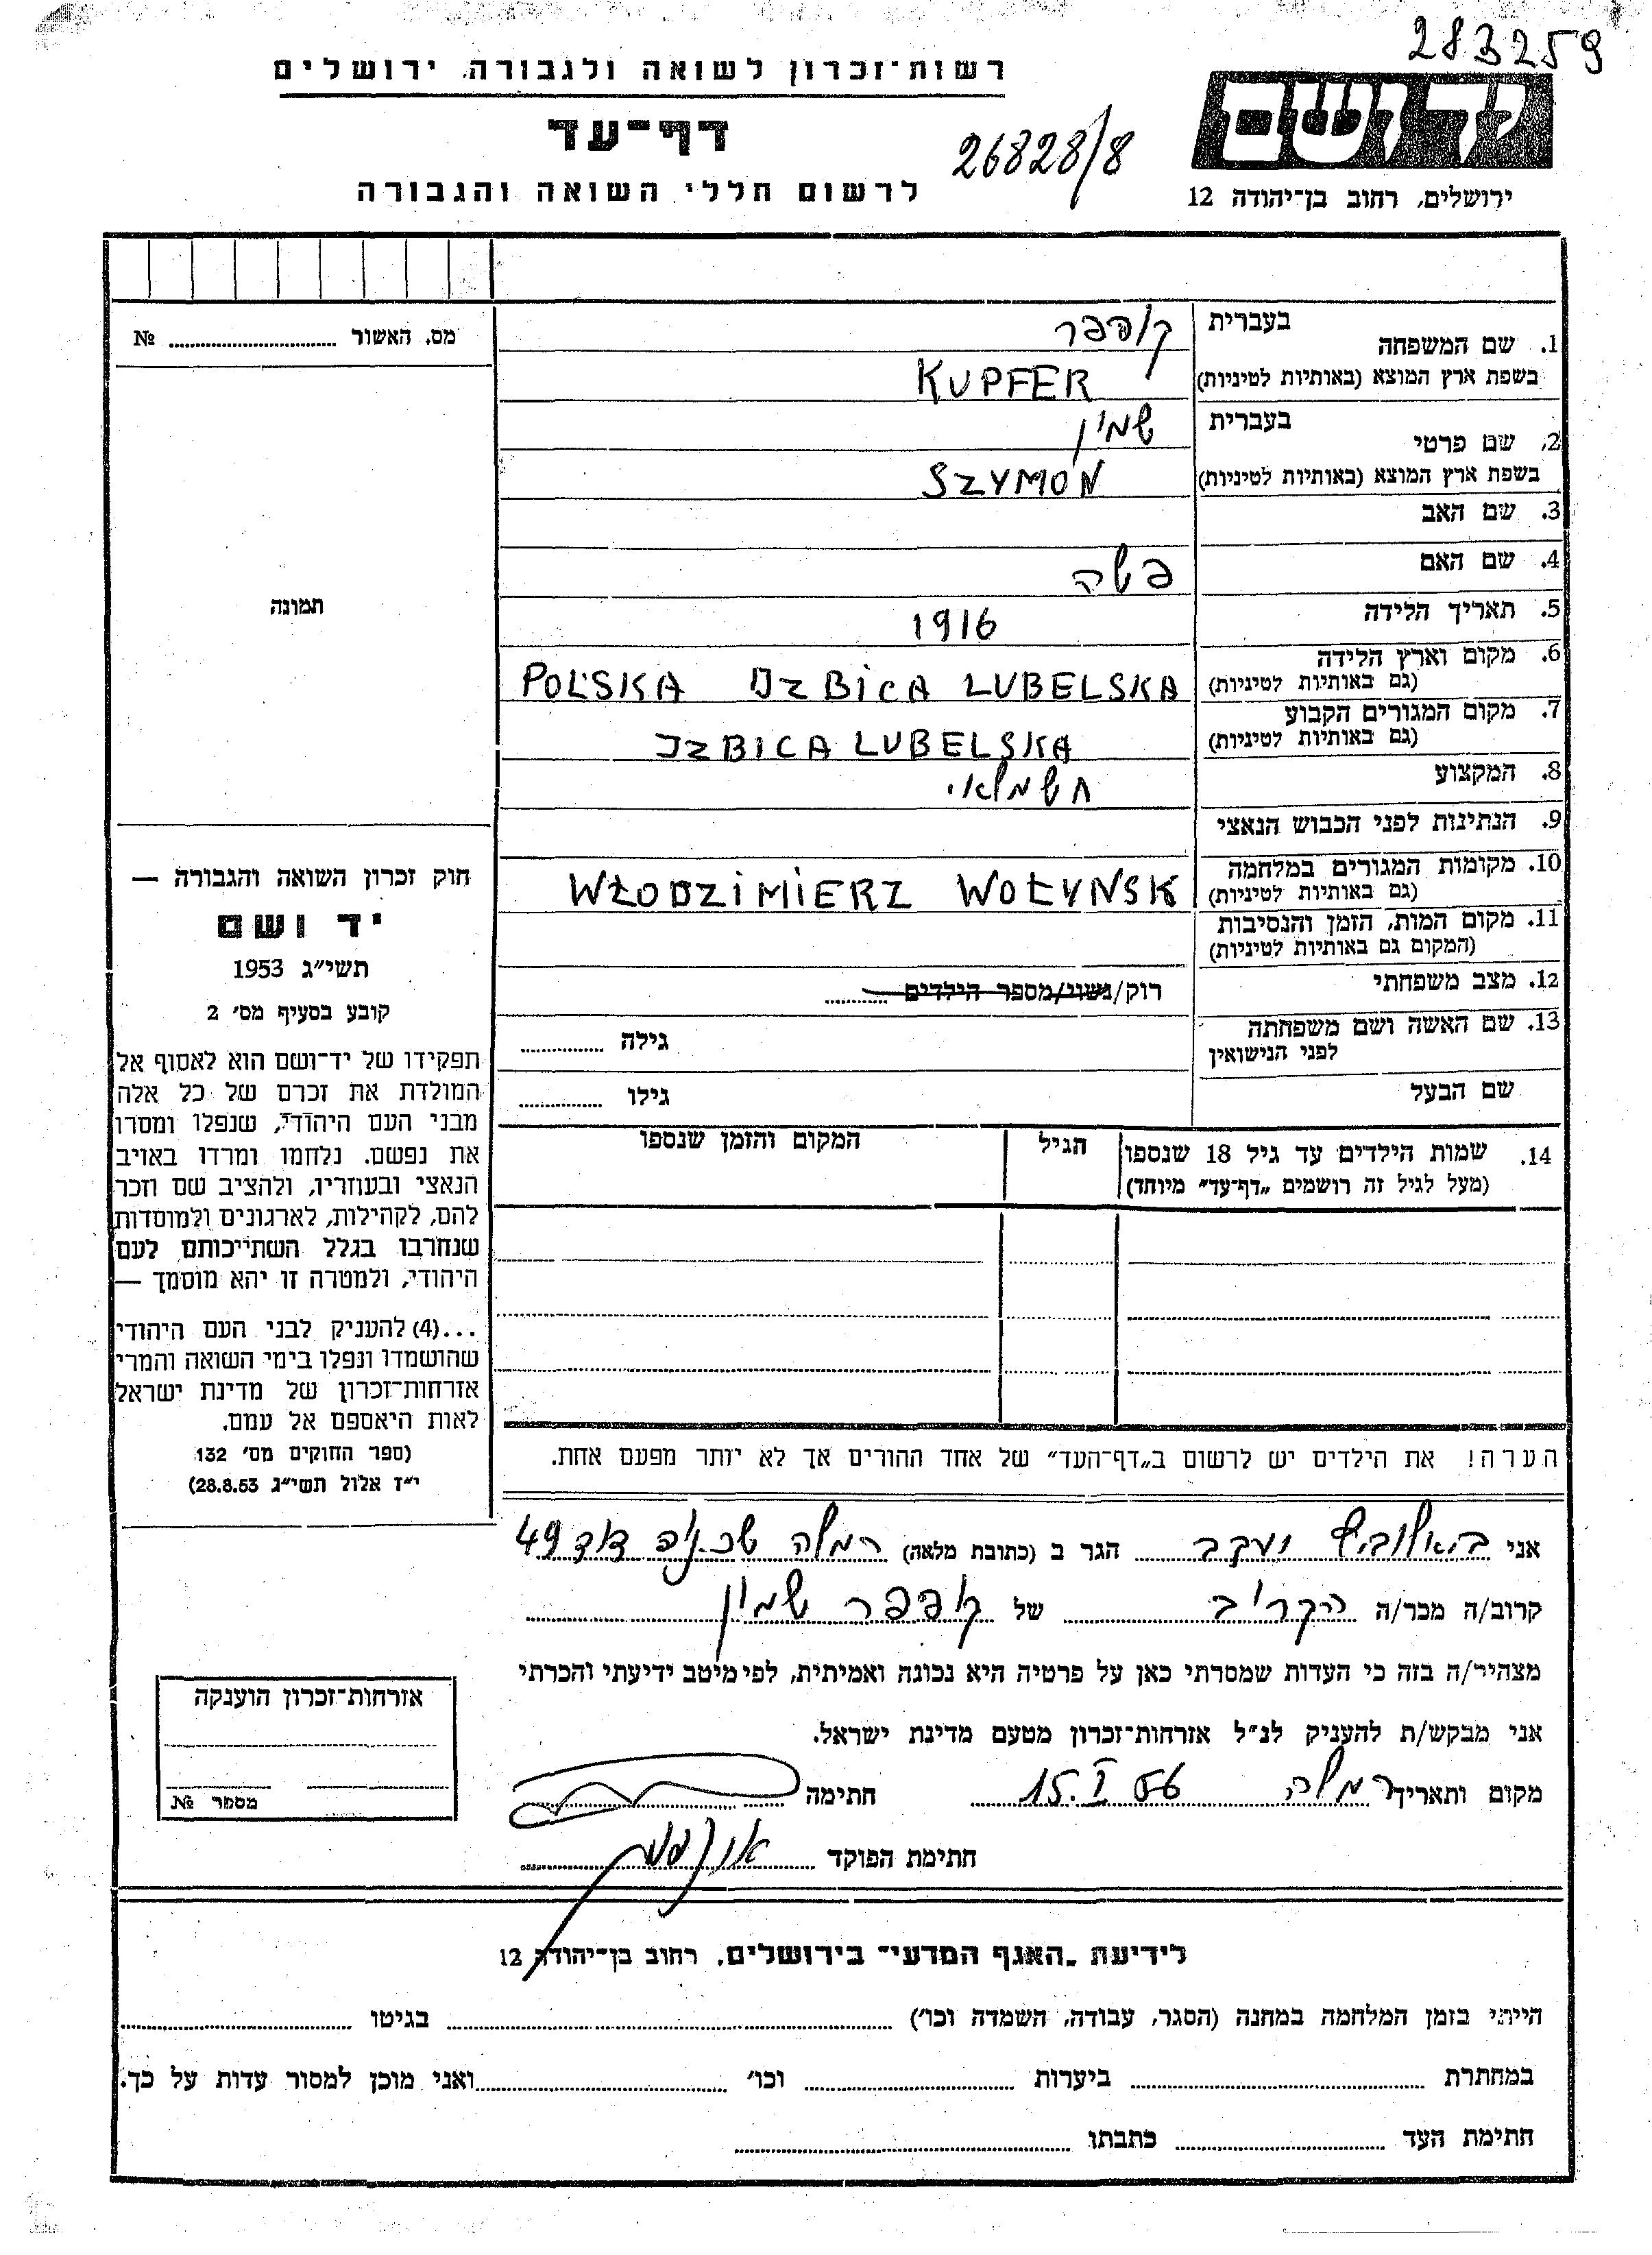 283259
רשות־זכרון לשואה ולגבורה, ירושלים
דף־עד
26828/8
ידושם
לרשום חללי השואה והגבורה
ירושלים, רחוב בן־יהודה 12
מס. האשור ............ №
תמונה
1. שם המשפחה בעברית קופפר
בשפת ארץ המוצא (באותיות לטיניות) KUPFER
2. שם פרטי בעברית שמון
בשפת ארץ המוצא (באותיות לטיניות) SZYMON
3. שם האב
4. שם האם פשה
5. תאריך הלידה 1916
6. מקום וארץ הלידה
(גם באותיות לטיניות) POLSKA IZBICA LUBELSKA
7. מקום המגורים הקבוע
(גם באותיות לטיניות) IZBICA LUBELSKA
8. המקצוע חשמלאי
9. הנתינות לפני הכבוש הנאצי
10. מקומות המגורים במלחמה
(גם באותיות לטיניות) WŁODZIMIERZ WOŁYNSK
11. מקום המות, הזמן והנסיבות
(המקום גם באותיות לטיניות)
12. מצב משפחתי רוק/נשוי/מספר הילדים ............
13. שם האשה ושם משפחתה
לפני הנישואין גילה ............
שם הבעל גילו ............
14. שמות הילדים עד גיל 18 שנספו הגיל המקום והזמן שנספו
(מעל לגיל זה רושמים „דף־עד” מיוחד)
חוק זכרון השואה והגבורה —
יד ושם
תשי״ג 1953
קובע בסעיף מס׳ 2
תפקידו של יד־ושם הוא לאסוף אל
המולדת את זכרם של כל אלה
מבני העם היהודי, שנפלו ומסרו
את נפשם. נלחמו ומרדו באויב
הנאצי ובעוזריו, ולהציב שם וזכר
להם, לקהילות, לארגונים ולמוסדות
שנחרבו בגלל השתייכותם לעם
היהודי, ולמטרה זו יהא מוסמך —
...(4) להעניק לבני העם היהודי
שהושמדו ונפלו בימי השואה והמרי
אזרחות־זכרון של מדינת ישראל
לאות היאספם אל עמם.
(ספר החוקים מס׳ 132
י״ז אלול תשי״ג 28.8.53)
הערה! את הילדים יש לרשום ב„דף־העד” של אחד ההורים אך לא יותר מפעם אחת.
אני יעקב הגר ב (כתובת מלאה) רמלה 49
קרוב/ה מכר/ה הקרוב של קופפר שמון
מצהיר/ה בזה כי העדות שמסרתי כאן על פרטיה היא נכונה ואמיתית, לפי מיטב ידיעתי והכרתי
אני מבקש/ת להעניק לנ״ל אזרחות־זכרון מטעם מדינת ישראל.
מקום ותאריך רמלה 15.I 56 חתימה
חתימת הפוקד
אזרחות־זכרון הוענקה
מספר №
לידיעת „האגף המדעי” בירושלים, רחוב בן־יהודה 12
הייתי בזמן המלחמה במחנה (הסגר, עבודה, השמדה וכו׳) ............ בגיטו ............
במחתרת ............ ביערות ............ וכו׳ ............ ואני מוכן למסור עדות על כך.
חתימת העד ............ כתבתו ............